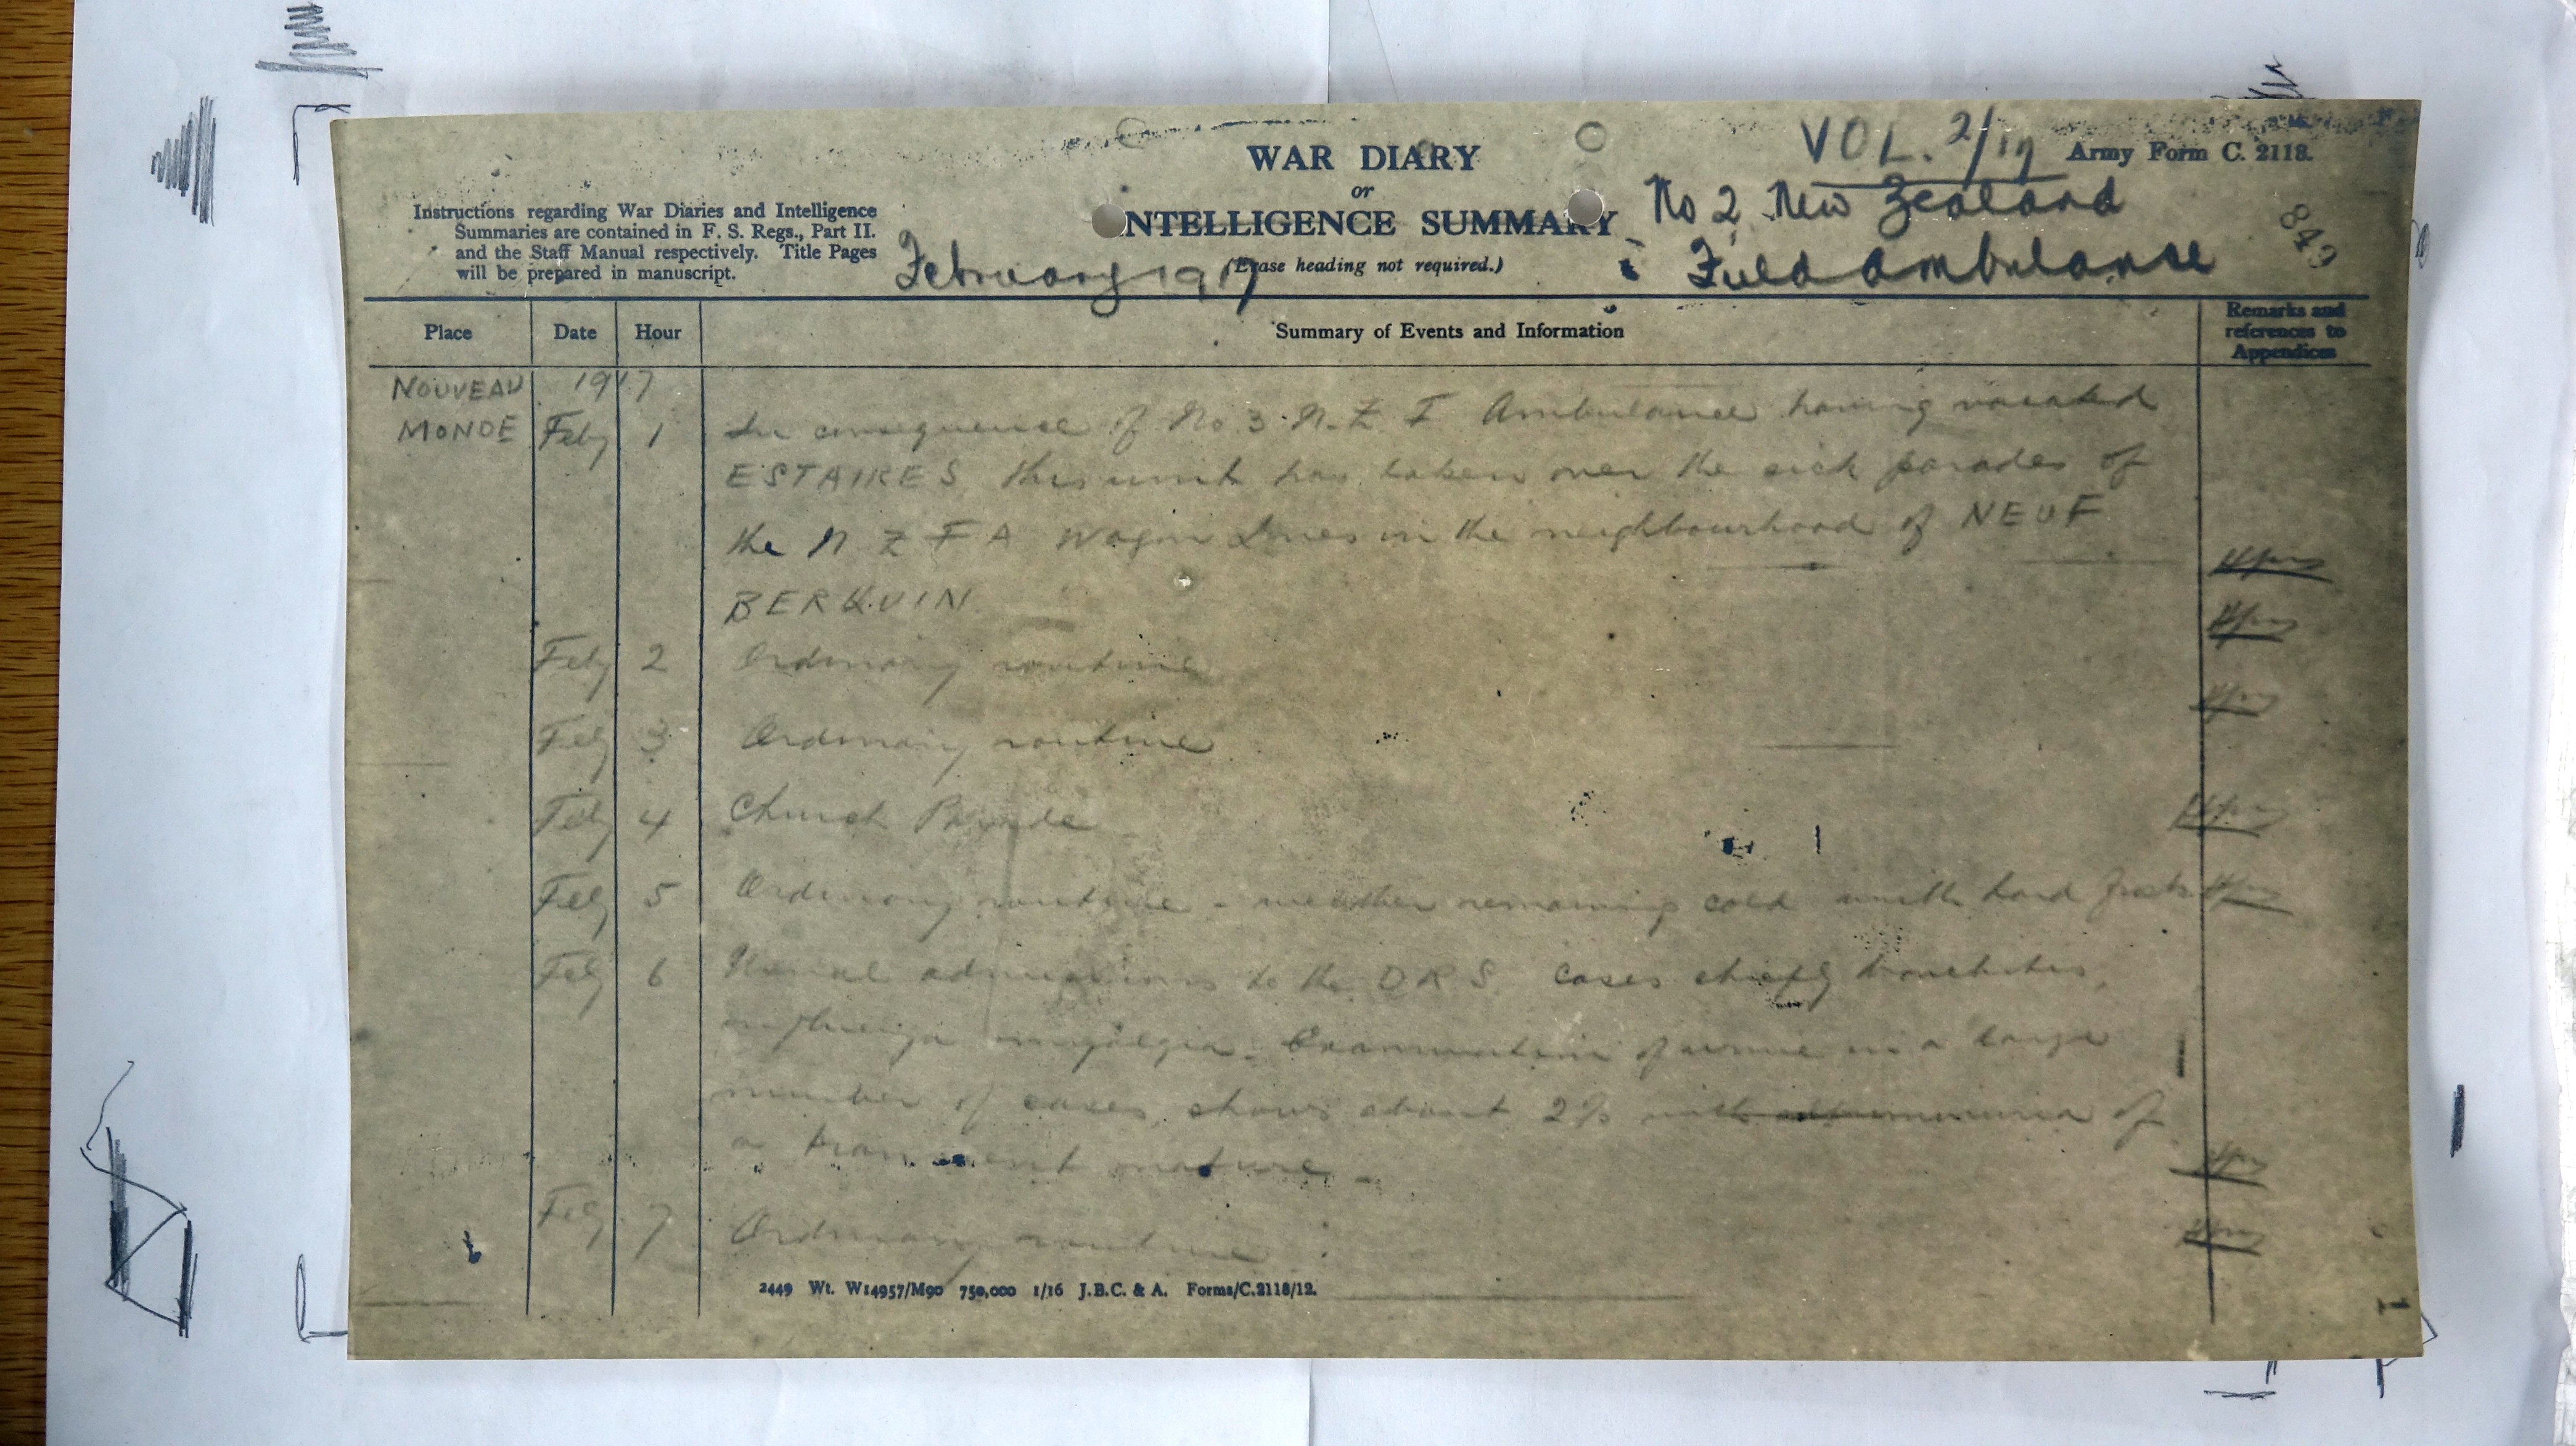 VOL. 2/17
WAR DIARY
Army Form C. 2118.
or
Instructions regarding War Diaries and Intelligence
Summaries are contained in F. S. Regs., Part II.
and the Staff Manual respectively. Title Pages
will be prepared in manuscript.
INTELLIGENCE SUMMARY
No 2 New Zealand
Field Ambulance
843
February 1917
(Erase heading not required.)
Place Date Hour Summary of Events and Information Remarks and
references to
Appendices
NOUVEAU 1917
MONDE Feby 1 In consequence of No 3 N.Z. F Ambulance having vacated
ESTAIRES this unit has taken over the sick parades of
the N Z F A Wagon Lines in the neighbourhood of NEUF
BERQUIN
Feby 2 Ordinary routine
Feby 3 Ordinary routine
Feby 4 Church Parade
Feby 5 Ordinary routine - weather remaining cold with hard frosts
Feby 6 Usual admissions to the D R S. cases chiefly bronchitis,
influenza myalgia. Examination of urine in a large
number of cases, shows about 2% with albuminuria of
a transient nature -
Feby 7 Ordinary routine
2449 Wt. W14957/M90 750,000 1/16 J.B.C. & A. Forms/C.2118/12.
1